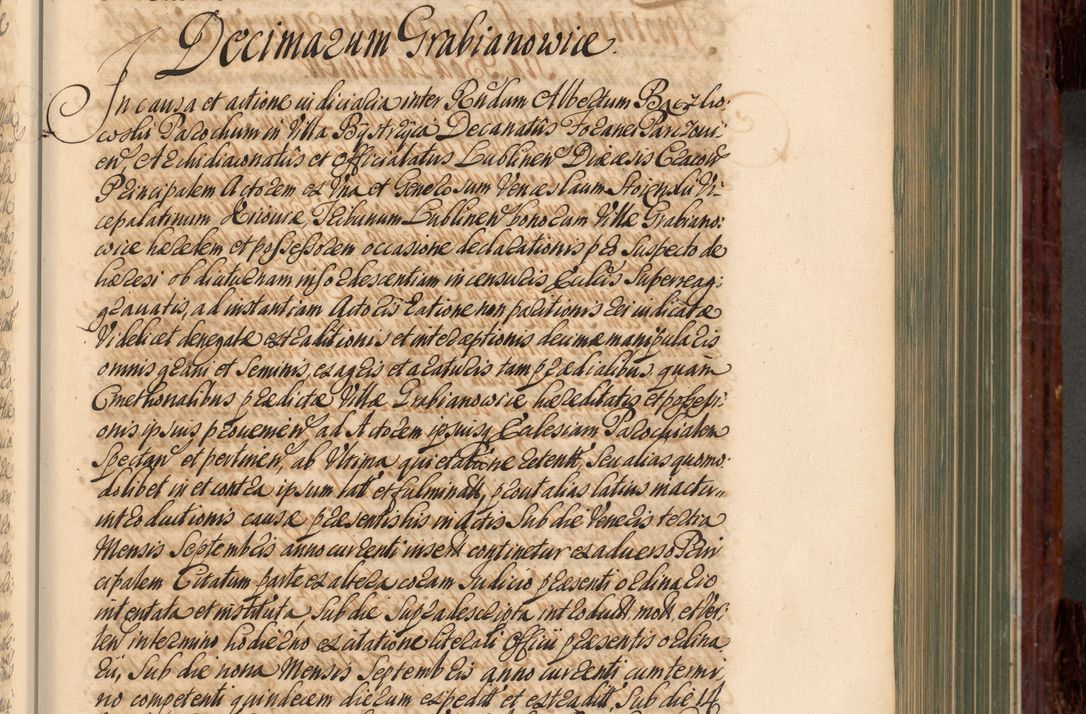 Decimarum Grabianowice.
In causa et actione iudicialia inter Rndum Albertum Baczko-
cosky Parochum in Villa Bystrzyca Decanatus Foranei Parczovi-
en Archidiaconatus et officialatus Lublinen Diæcesis Cracov
Principalem Actorem ex Una et Generosum Venceslaum Vi-
cepalatinum Tribunum Lublinen bonorum Villæ Grabiano-
wice hæredem et possessorem occasione declarationis pro suspecto de
hæresi ob diuturnam insordescentiam in censuris Eccliis Superreag-
gravatis, ad instantiam Actoris Ratione non paritionis rei iudicatæ
Videlicet denegatæ extraditionis et interceptionis decimæ manipularis
omnis grani et seminis, ex agris et araturis tam prædialibus quam
Cmethonalibus prædictæ Villæ Grabianowice hæreditatis et possessi-
onis ipsius provenien ad Actorem ipsiusq Eclesiam Parochialem
Spectan et pertinen, ab Ultima quietatione retent, Seu alias quomo-
dolibet in et contra ipsum lat et fulminat, prout alias latius in acter
introductionis causæ præsentis his in Actis Sub die Veneris tertia
Mensis Septembris anno currenti insert continetur ex adverso Prin
cipalem Citatum parte ex altera coram Iudicio præsenti ordinario
intentata et instituta, Sub die Supra descripta introduct mot et ver-
ten in termino hodierno ex citatione literali Officii præsentis ordina
rii, Sub die nona Mensis Septembris anno currenti cum termi-
no competenti quindecem dierum expedit et extradit, Sub die 14